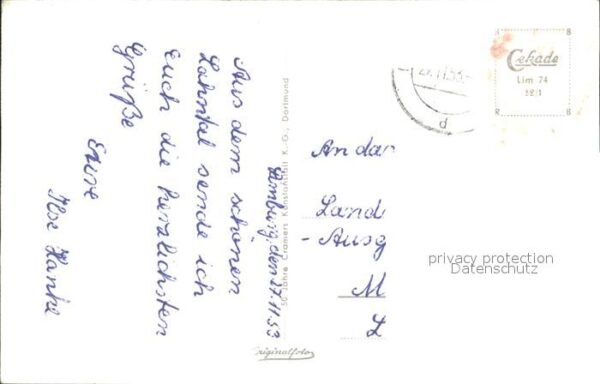 Limburg, den 27.11.53
Aus dem schönen
Lahntal sende ich
Euch die herzlichsten
Grüße
Eure
Ilse Hanke
50 Jahre Cramers Kunstanstalt K.-G., Dortmund
Originalfoto
27.11.53
d
Cekade
Lim 74
An da
Land
-Ausg
M
L
privacy protection
Datenschutz